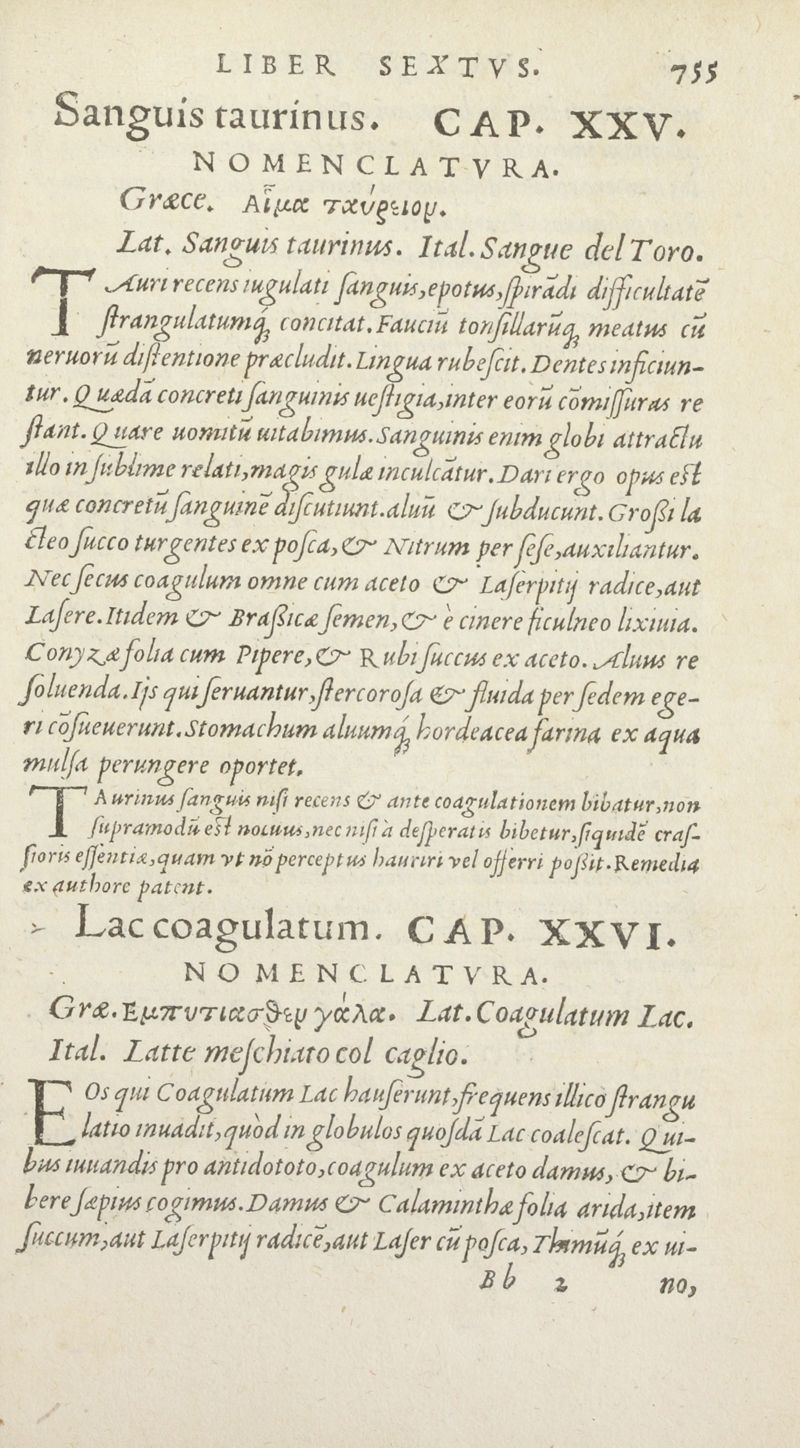 LIBER SEXTVS. 755
Sanguis taurinus. CAP. XXV.
NOMENCLATVRA.
Græce. Αἷμα ταύρειου.
Lat. Sanguis taurinus. Ital. Sangue del Toro.
TAuri recens iugulati ſanguis,epotus,ſpirādi difficultatē
ſtrangulatumq́ꝫ concitat.Fauciū tonſillarūqꝫ meatus cū
neruorū diſtentione præcludit.Lingua rubeſcit.Dentes inficiun-
tur.Quædā concreti ſanguinis ueſtigia,inter eorū cōmiſſuras re
ſtant.Quare uomitū uitabimus.Sanguinis enim globi attractu
illo in ſublime relati,magis gulæ inculcātur.Dari ergo opus eſt
quæ concretū ſanguinē diſcutiunt.aluū & ſubducunt.Großi la
cteo ſucco turgentes ex poſca,& Nitrum per ſeſe,auxiliantur.
Nec ſecus coagulum omne cum aceto & Laſerpitij radice,aut
Laſere.Itidem & Braßicæ ſemen,& è cinere ficulneo lixiuia.
Conyzæ folia cum Pipere,& Rubi ſuccus ex aceto.Aluus re
ſoluenda.Ijs qui ſeruantur,ſtercoroſa & fluida per ſedem ege-
ri cōſueuerunt.Stomachum aluumq́ꝫ hordeacea farina ex aqua
mulſa perungere oportet.
TAurinus ſanguis niſi recens & ante coagulationem bibatur,non
ſupramodū eſt nocuus,nec niſi à deſperatis bibetur,ſiquidē craſ-
ſioris eſſentiæ,quam vt nō perceptus hauriri vel offerri poßit.Remedia
ex authore patent.
Lac coagulatum. CAP. XXVI.
NOMENCLATVRA.
Græ.Εμπυτιασθευ γάλα. Lat.Coagulatum Lac.
Ital. Latte meſchiato col caglio.
EOs qui Coagulatum Lac hauſerunt,frequens illico ſtrangu
latio inuadit,quòd in globulos quoſdā Lac coaleſcat. Qui-
bus iuuandis pro antidototo,coagulum ex aceto damus, & bi-
bere ſæpius cogimus.Damus & Calaminthæ folia arida,item
ſuccum,aut Laſerpitij radicē,aut Laſer cū poſca, Thimūq́ꝫ ex ui-
Bb 2 no,